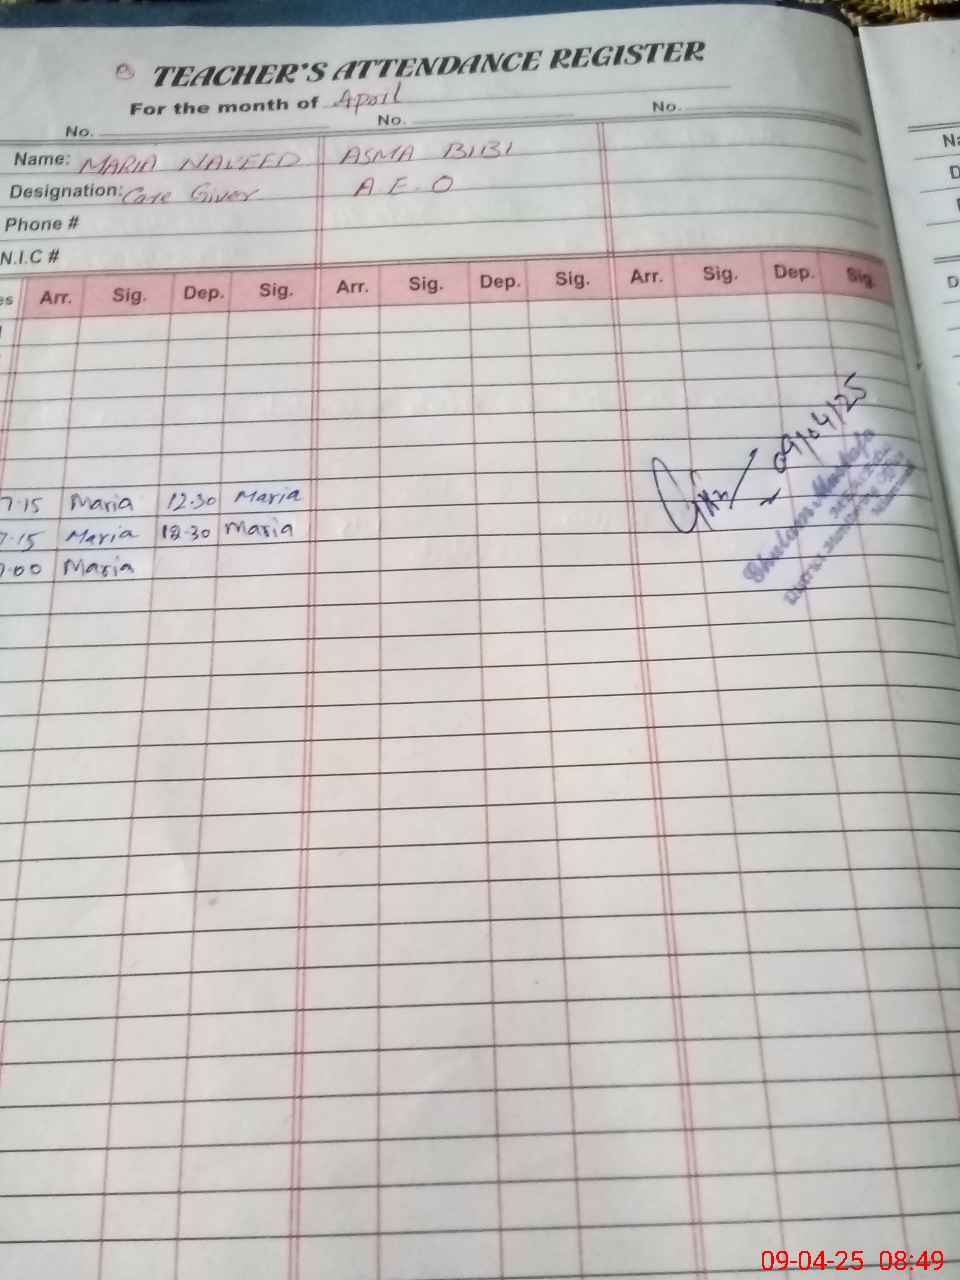 TEACHER'S ATTENDANCE REGISTER
For the month of April
No. No. No.
Name: MARIA NAVEED ASMA BIBI
Designation: Care Giver A.E.O
Phone #
N.I.C #
es Arr. Sig. Dep. Sig. Arr. Sig. Dep. Sig. Arr. Sig. Dep. Sig.
09/04/25
Ghulam Mustafa
7.15 Maria 12.30 Maria
7.15 Maria 12.30 Maria
7.00 Maria
Na
D
D
09-04-25 08:49